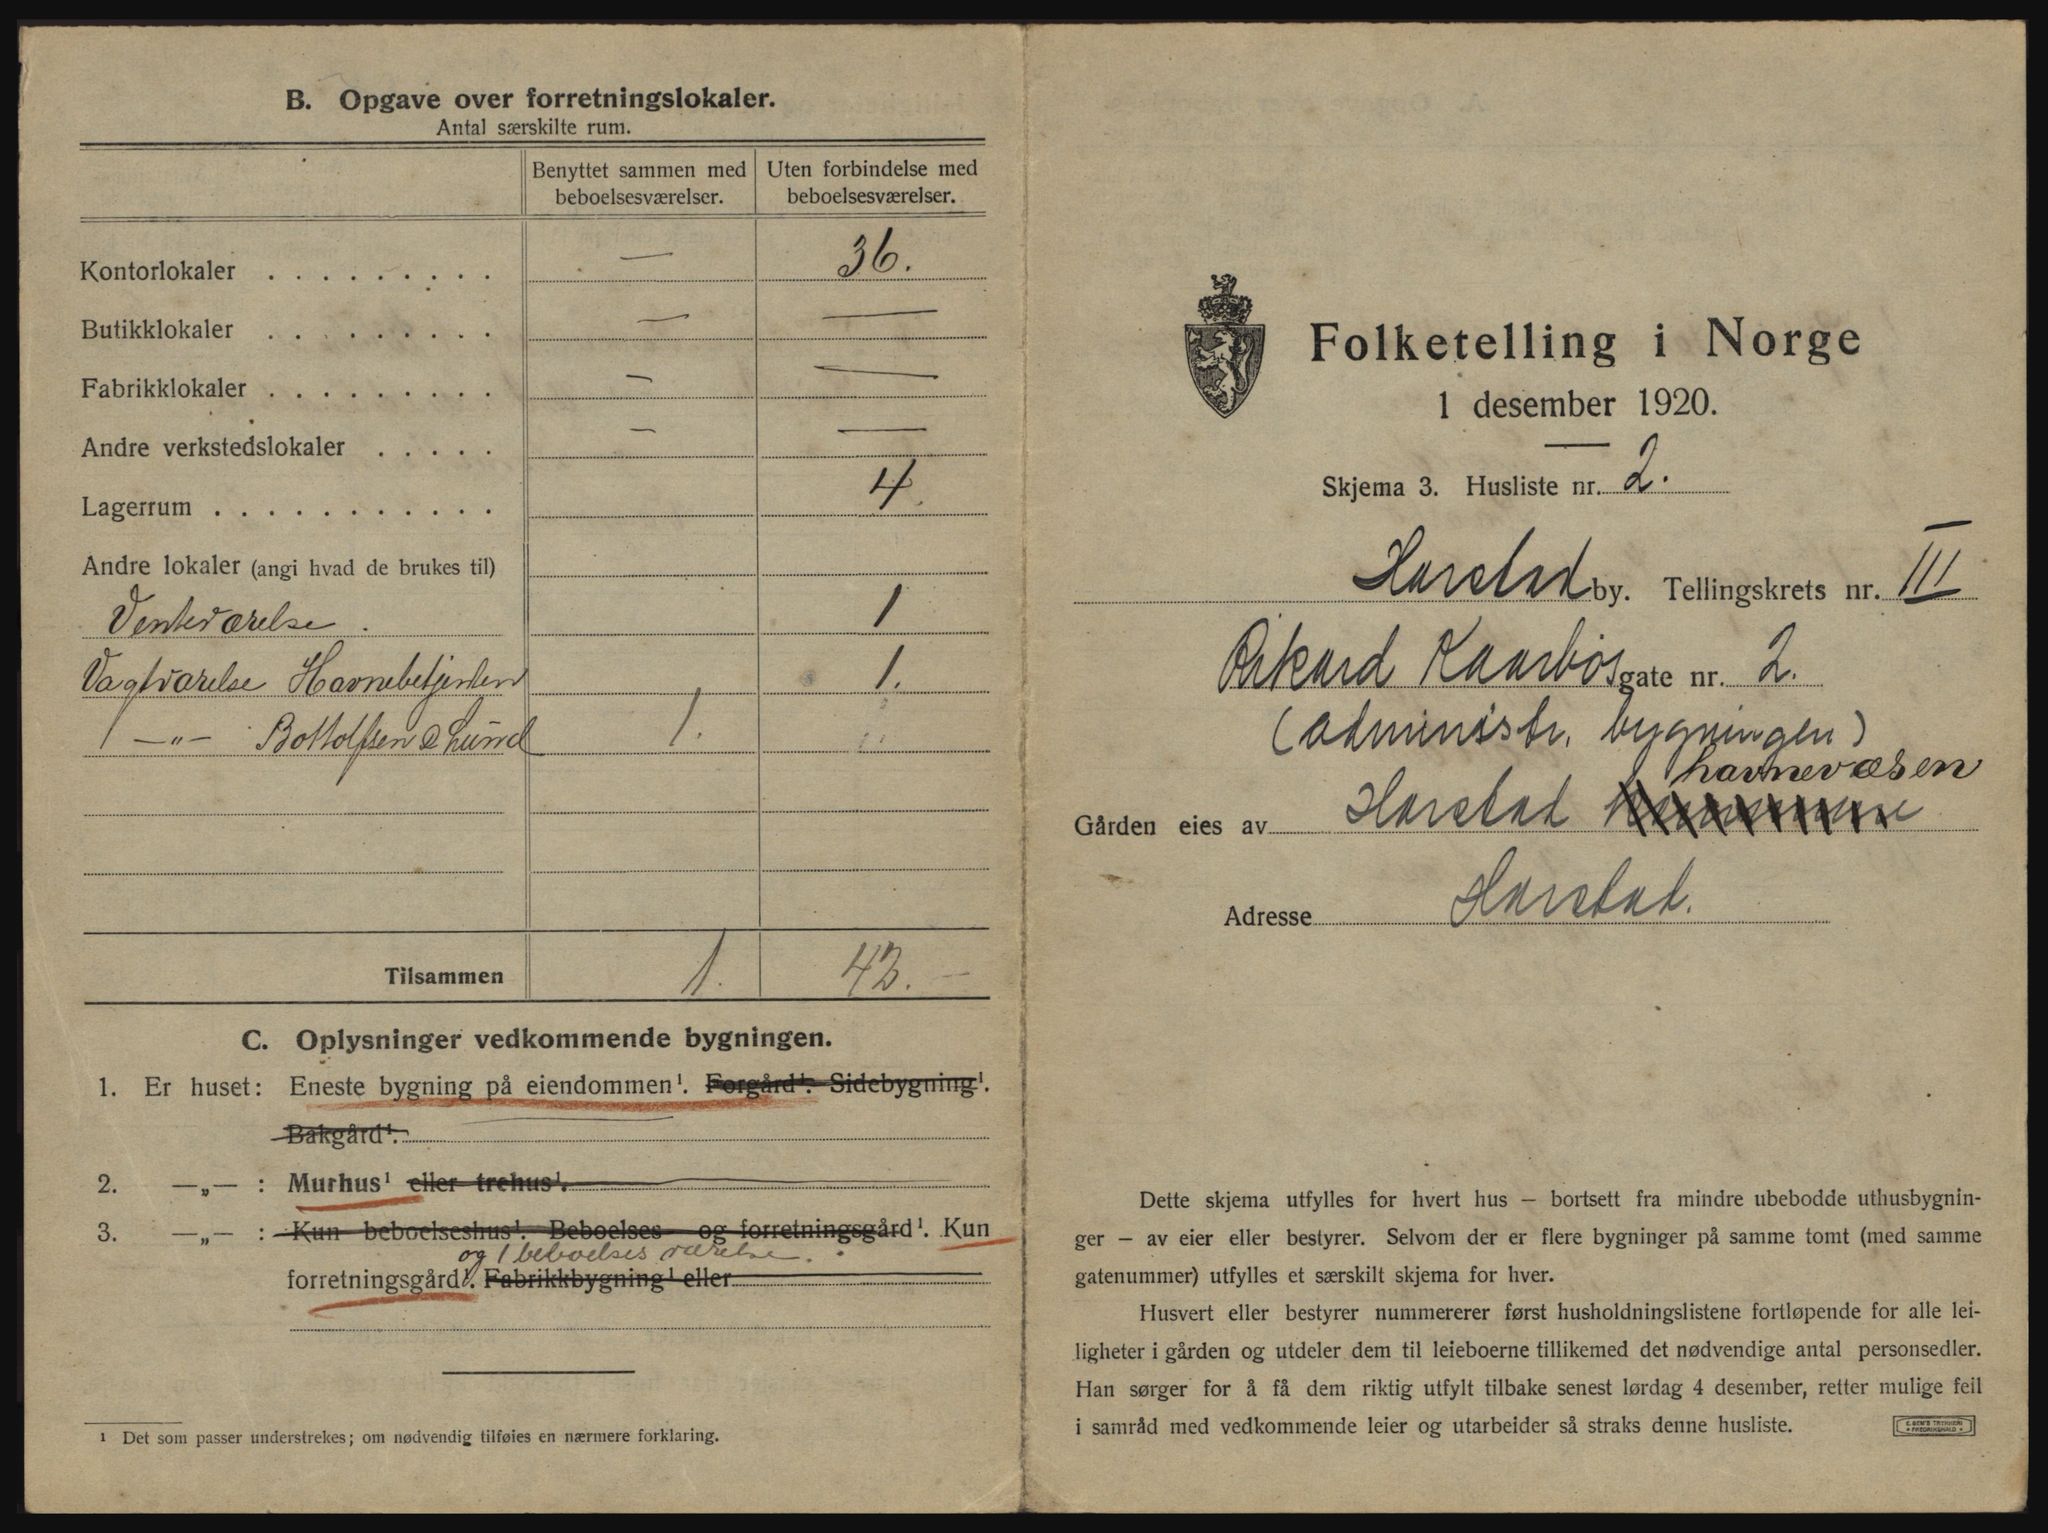 B. Opgave over forretningslokaler.
Antal særskilte rum.
Benyttet sammen med beboelsesværelser.
Uten forbindelse med beboelsesværelser.
Kontorlokaler . . . . . . . . . — 36.
Butikklokaler . . . . . . . . . — —
Fabrikklokaler . . . . . . . . . — —
Andre verkstedslokaler . . . . . — —
Lagerrum . . . . . . . . . . . 4.
Andre lokaler (angi hvad de brukes til)
Venteværelse. 1
Vagtværelse Havnebetjenten 1.
—„— Bottolfsen & Lund 1.
Tilsammen 1. 42. —
C. Oplysninger vedkommende bygningen.
1. Er huset: Eneste bygning på eiendommen¹. Forgård¹. Sidebygning¹.
Bakgård¹.
2. —„— : Murhus¹ eller trehus¹.
3. —„— : Kun beboelseshus¹. Beboelses- og forretningsgård¹. Kun
og 1 beboelsesværelse.
forretningsgård¹. Fabrikkbygning¹ eller
¹ Det som passer understrekes; om nødvendig tilføies en nærmere forklaring.
Folketelling i Norge
1 desember 1920.
Skjema 3. Husliste nr. 2.
Harstad by. Tellingskrets nr. III
Rikard Kaarbøs gate nr. 2.
(administr. bygningen)
havnevæsen
Gården eies av Harstad kommune
Adresse Harstad.
Dette skjema utfylles for hvert hus — bortsett fra mindre ubebodde uthusbygnin-
ger — av eier eller bestyrer. Selvom der er flere bygninger på samme tomt (med samme
gatenummer) utfylles et særskilt skjema for hver.
Husvert eller bestyrer nummererer først husholdningslistene fortløpende for alle lei-
ligheter i gården og utdeler dem til leieboerne tillikemed det nødvendige antal personsedler.
Han sørger for å få dem riktig utfylt tilbake senest lørdag 4 desember, retter mulige feil
i samråd med vedkommende leier og utarbeider så straks denne husliste.